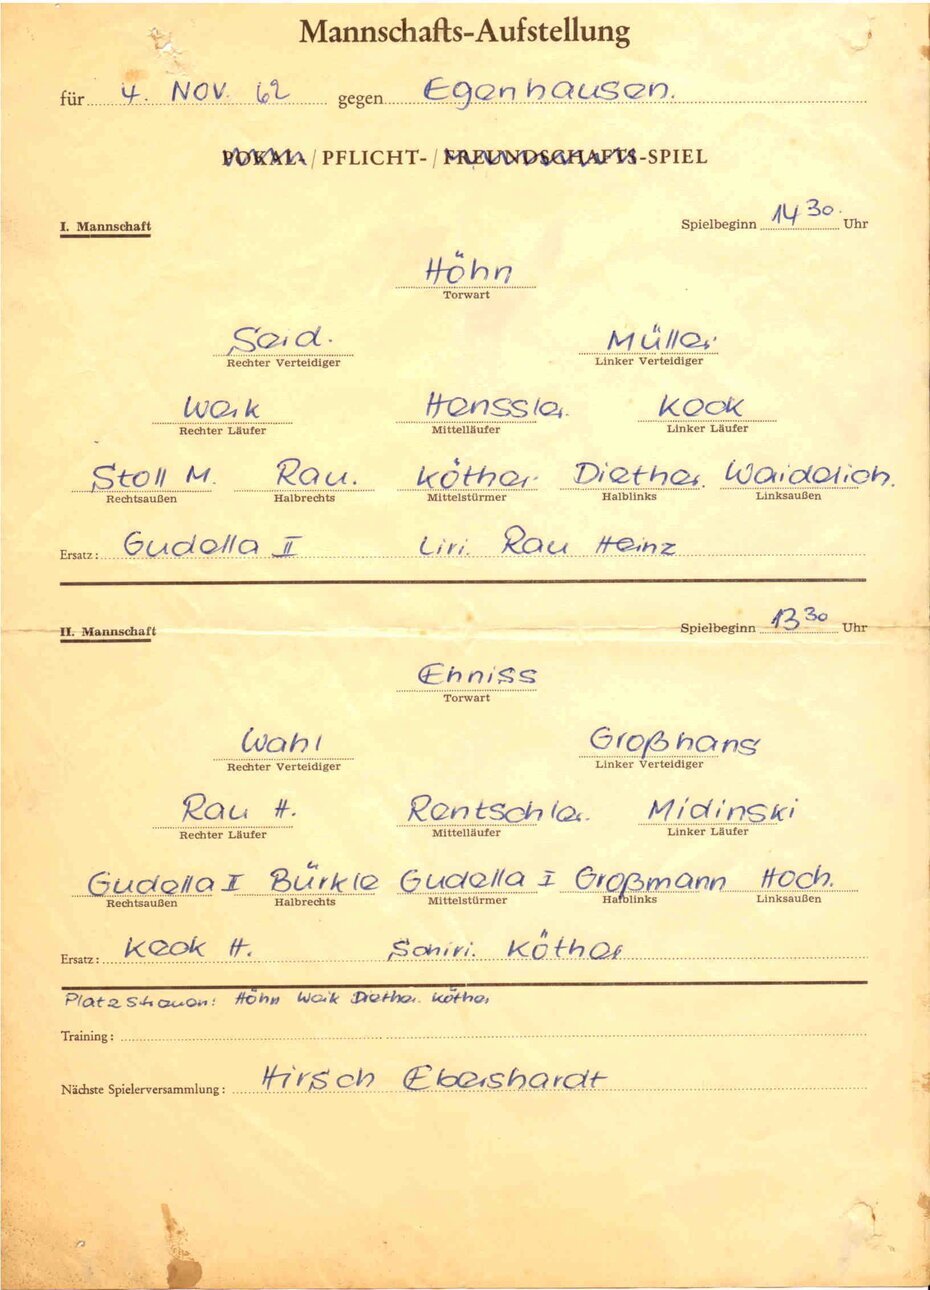 Mannschafts-Aufstellung
für 4. NOV. 62 gegen Egenhausen.
POKAL- / PFLICHT- / FREUNDSCHAFTS-SPIEL
I. Mannschaft Spielbeginn 14 30. Uhr
Höhn
Torwart
Seid. Müller
Rechter Verteidiger Linker Verteidiger
Weik Henssler. Keck
Rechter Läufer Mittelläufer Linker Läufer
Stoll M. Rau. Köther. Diether. Waidelich.
Rechtsaußen Halbrechts Mittelstürmer Halblinks Linksaußen
Ersatz: Gudella II Liri. Rau Heinz
II. Mannschaft Spielbeginn 13 30 Uhr
Ehniss
Torwart
Wahl Großhans
Rechter Verteidiger Linker Verteidiger
Rau H. Rentschler. Midinski
Rechter Läufer Mittelläufer Linker Läufer
Gudella II Bürkle Gudella I Großmann Hoch.
Rechtsaußen Halbrechts Mittelstürmer Halblinks Linksaußen
Ersatz: Keck H. Schiri. Köther
Platzstreuen: Höhn Weik Diether. Köther
Training:
Nächste Spielerversammlung: Hirsch Ebershardt